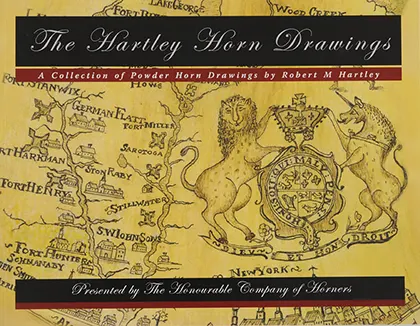 The Hartley Horn Drawings
A Collection of Powder Horn Drawings by Robert M Hartley
WOOD CREEK
FORT STANWIX
GERMAN FLATT
FORT MILLER
SARATOGA
FORT HARKMAN
STON RABY
FORT HENRY
STILLWATER
SWJOHNSONS
FORT HUNTER
SCHNANABY
DIEV ET MON DROIT
NEW YORK
Presented by The Honourable Company of Horners